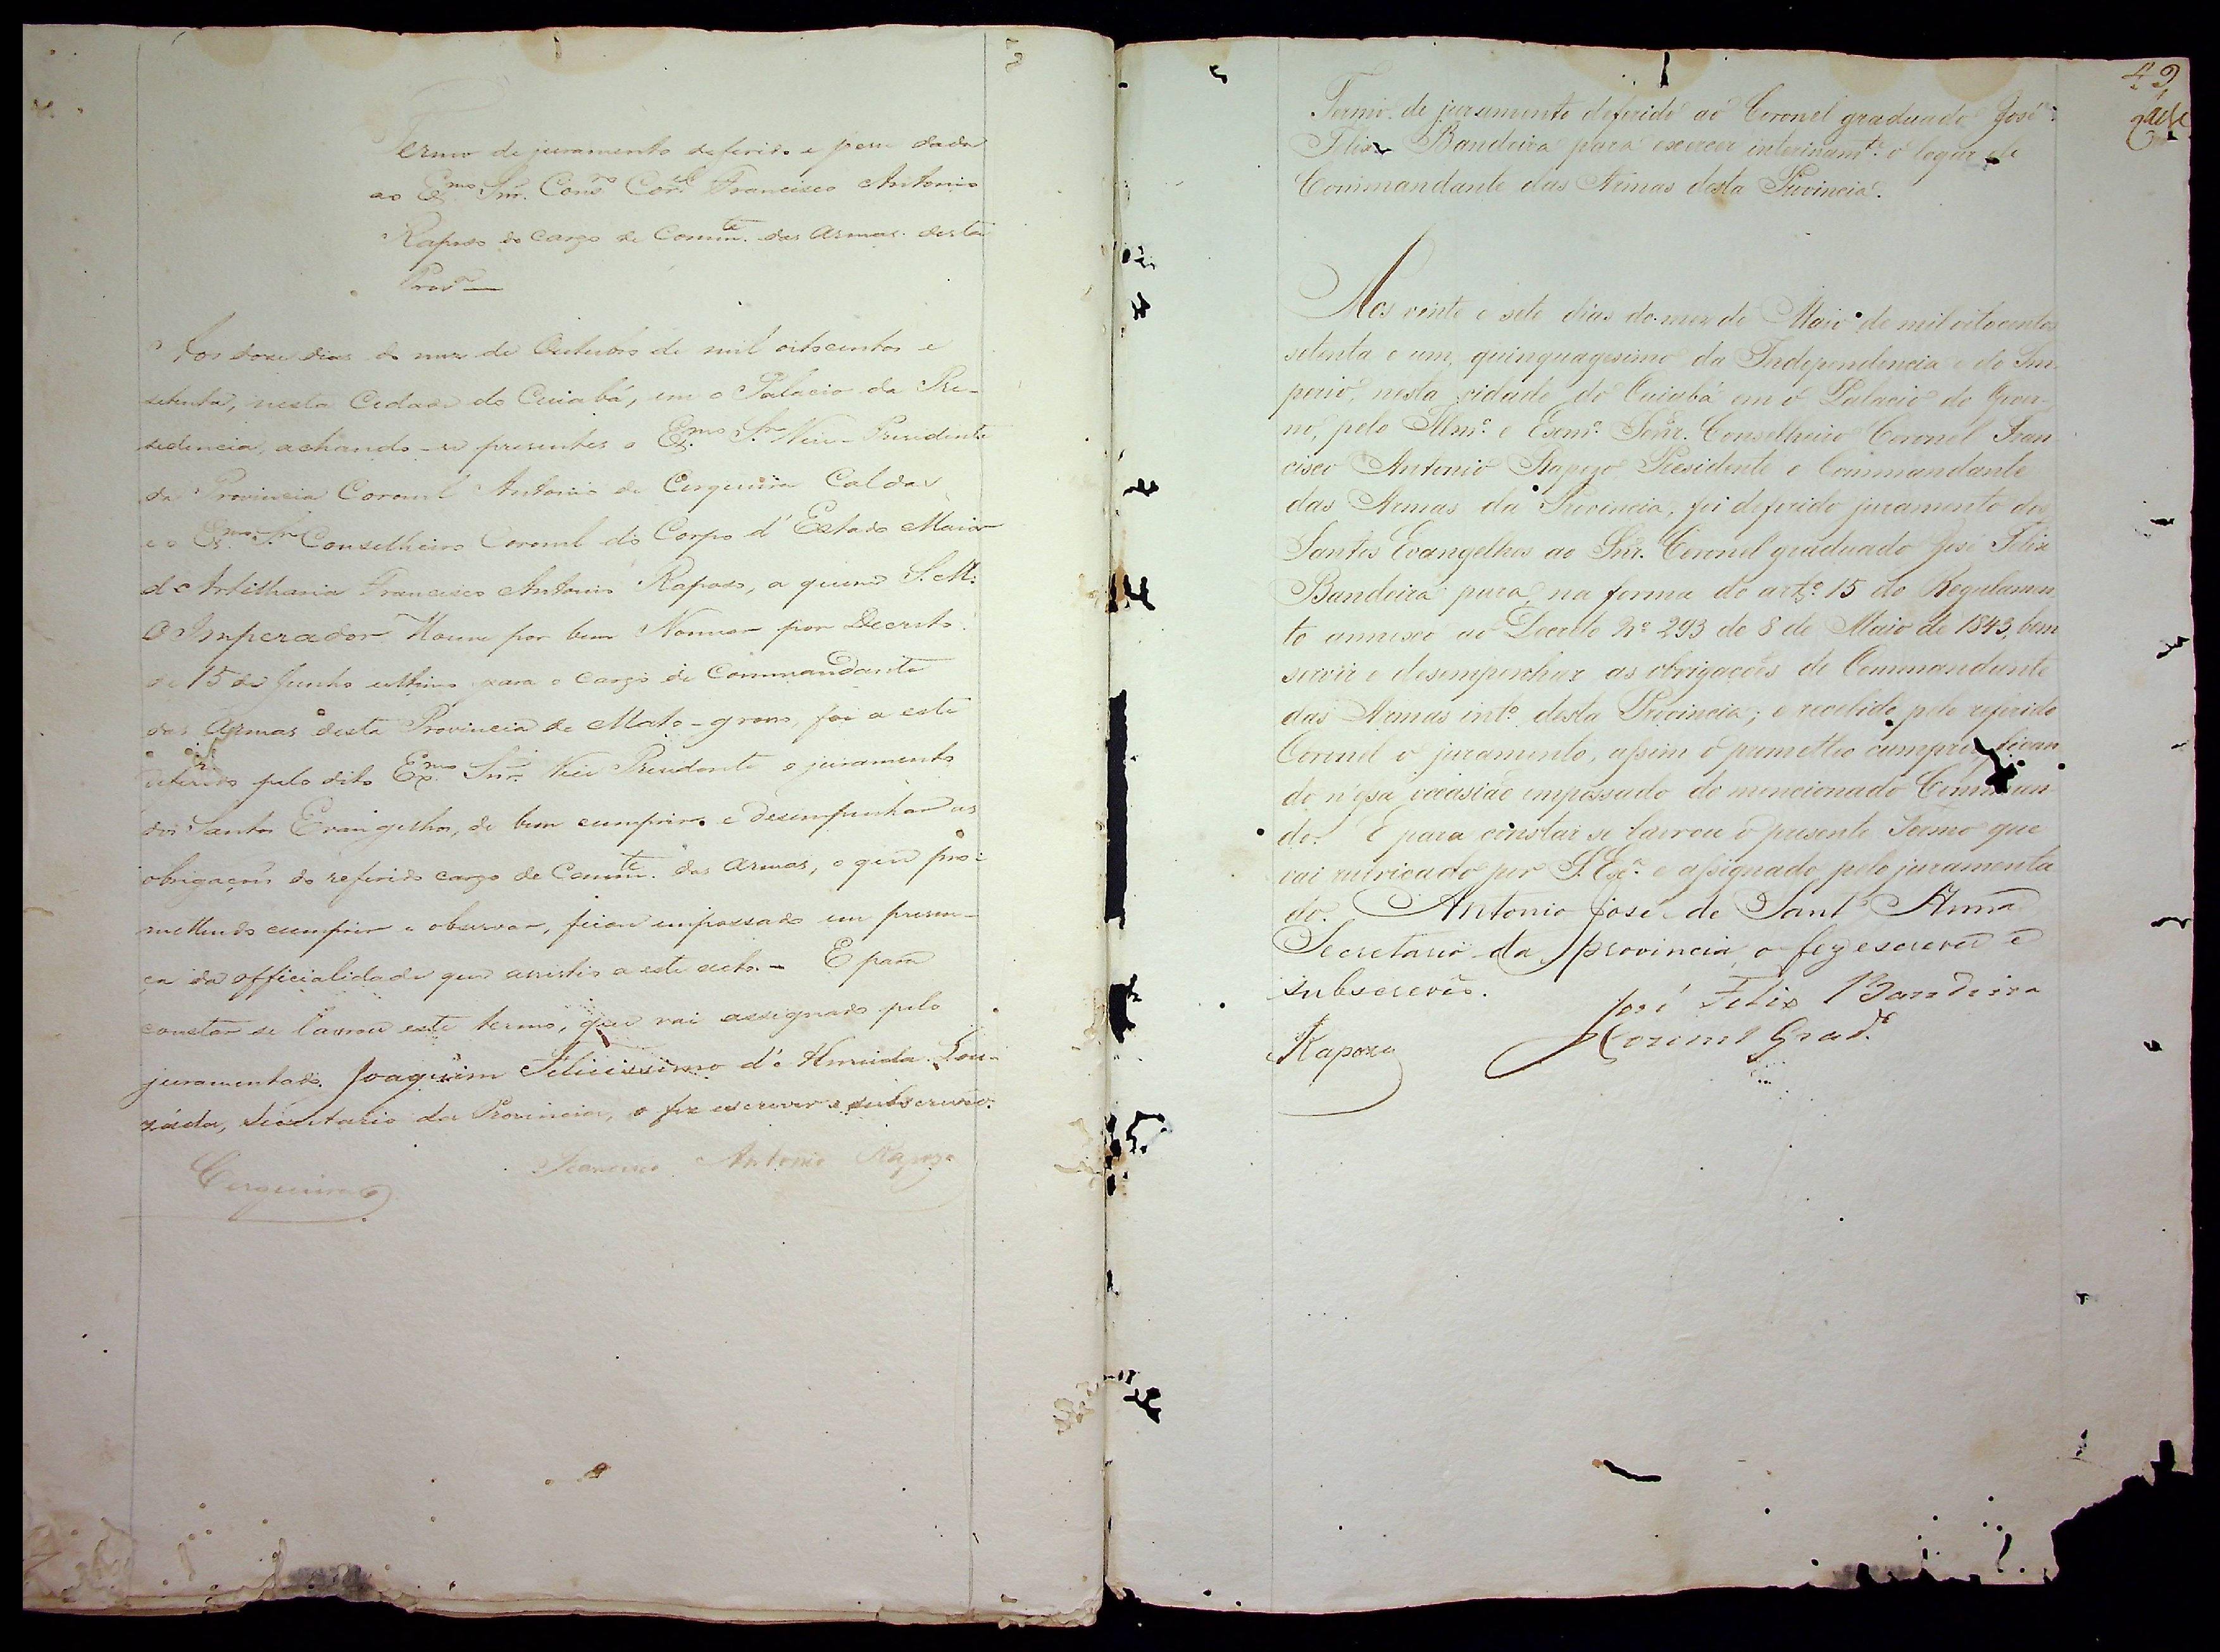 Termo de juramento deferido e posse dada
ao Exmo Snr. Conso Corel Francisco Antonio
Raposo do cargo de Commte. das Armas desta
Prova
Aos doze dias do mez de Outubro de mil oitocentos e
setenta, nesta Cidade do Cuiabá, em o Palacio da Pre-
sidencia, achando-se presentes o Exmo Sr Vice-Presidente
da Provincia Coronel Antonio de Cerqueira Caldas
e o Exmo Sr Conselheiro Coronel do Corpo d'Estado Maior
de Artilharia Francisco Antonio Raposo, a quem S. M.
O Imperador Houve por bem Nomear por Decreto
de 15 de Junho ultimo para o cargo de Commandante
das Armas desta Provincia de Mato-grosso, foi a este
deferido pelo dito Exmo Snr. Vice Presidente o juramento
dos Santos Evangelhos, de bem cumprir e desempenhar as
obrigações do referido cargo de Commte. das Armas, o que pro-
mettendo cumprir e observar, ficou empossado em presen-
ça da officialidade que assistio a este acto. - E para
constar se lavrou este termo, que vai assignado pelo
juramentado. Joaquim Felicissimo d'Almeida Lou-
záda, Secretario da Provincia, o fez escrever e subscreveo.
Francisco Antonio Rapozo
Cerqueira
49
Termo de juramento deferido ao Coronel graduado José
Felix Bandeira para exercer interinamte. o logar de
Commandante das Armas desta Provincia.
Aos vinte e sete dias do mez de Maio de mil oitocentos
setenta e um, quinquagesimo da Independencia e do Im-
perio, nesta cidade do Cuiabá em o Palacio do Gover-
no, pelo Illmo. e Exmo. Senr. Conselheiro Coronel Fran
cisco Antonio Rapozo Presidente e Commandante
das Armas da Provincia, foi deferido juramento dos
Santos Evangelhos ao Snr. Coronel graduado José Felix
Bandeira para, na forma do artº. 15 do Regulamen
to annexo ao Decreto Nº 293 de 8 de Maio de 1843, bem
servir e desempenhar as obrigações de Commandante
das Armas into. desta Provincia; e recebido pelo referido
Coronel o juramento, assim o prometteo cumprir, fican
do n'essa occasião empossado do mencionado Comman
do. E para constar se lavrou o presente Termo que
vai rubricado por S. Exa. e assignado pelo juramenta
do. Antonio José de Sant'Anna
Secretario da provincia o fez escrever e
subscreveo.
José Felix Bandeira
Coronel Grado.
Rapozo